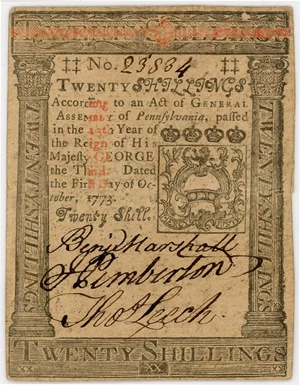 TWENTY SHILLINGS
‡‡ No. 23864 ‡‡
TWENTY SHILLINGS
According to an Act of GENERAL
ASSEMBLY of Pennsylvania, passed
in the 13th Year of
the Reign of His
Majesty GEORGE
the Third. Dated
the First Day of Oc-
tober, 1773.
Twenty Shill.
TWENTY SHILLINGS
TWENTY SHILLINGS
Benj Marshall
Pemberton
Thos Leech.
TWENTY SHILLINGS
XX XX XX